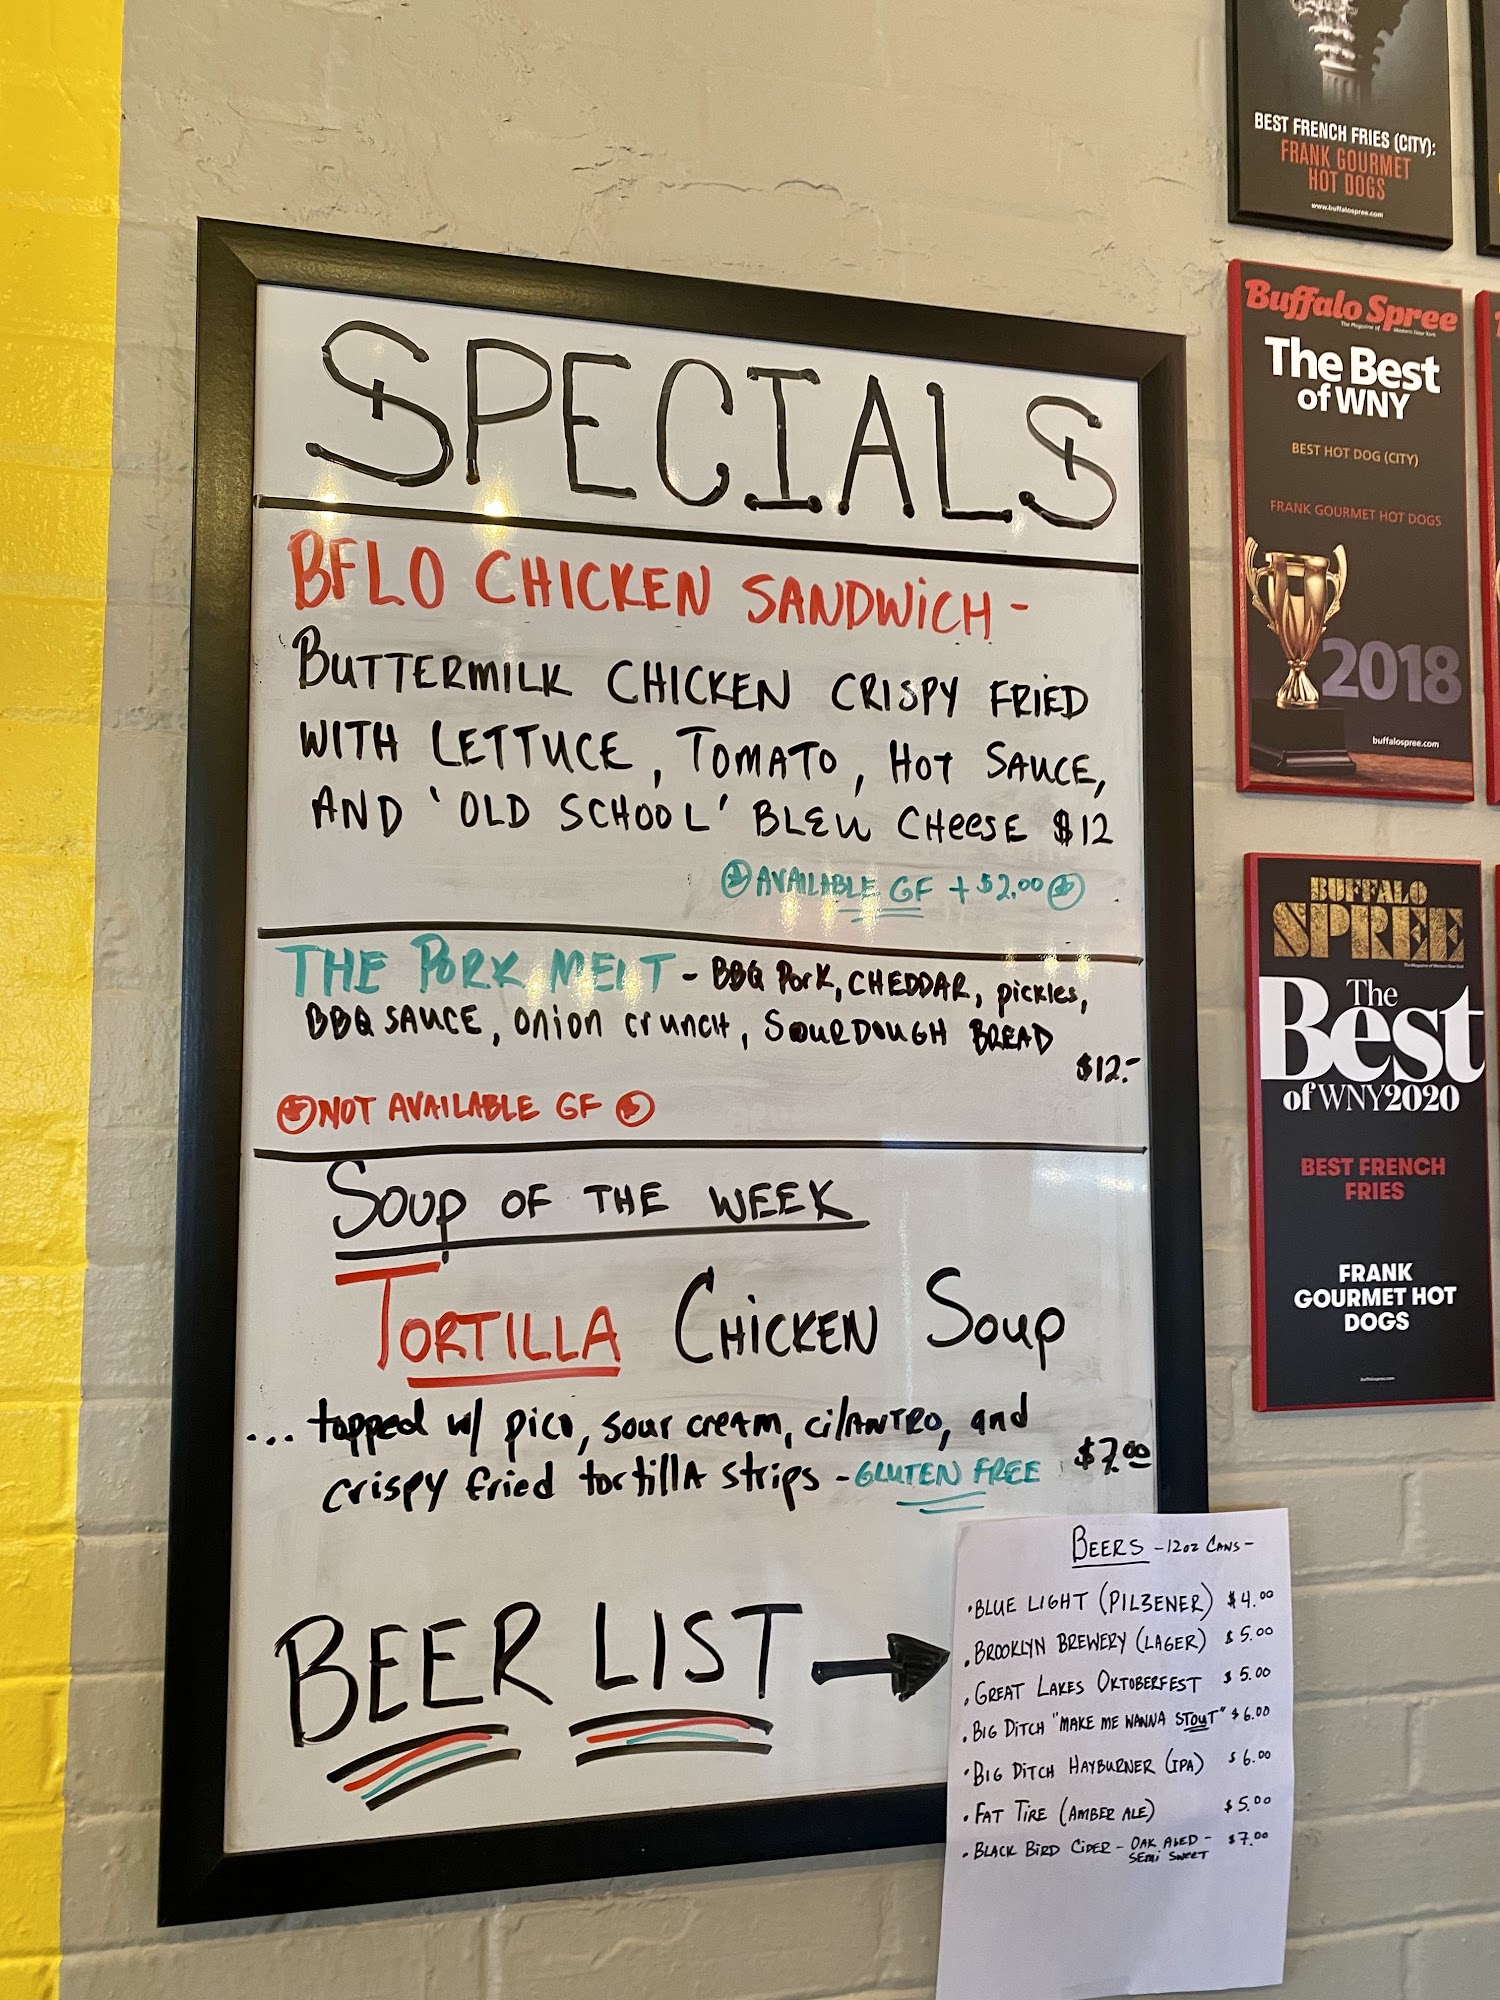 SPECIALS
BFLO CHICKEN SANDWiCH -
BUTTERMILK CHICKEN CRISPY FRiED
WITH LETTUCE, TOMATO, HOT SAUCE,
AND 'OLD SCHOOL' BLEU CHeeSE $12
AVAILABLE GF + $2.00
THE PORK MELT - BBQ PORK, CHEDDAR, pickles,
BBQ SAUCE, onion crunch, SOURDOUGH BREAD
$12.-
NOT AVAILABLE GF
Soup OF THE WEEK
TORTILLA CHiCKEN Soup
... topped w/ pico, sour creAm, cilANTRO, and
crispy fried tortillA strips - GLUTEN FREE $7.00
BEER LIST
BEERS -12oz CANS-
• BLUE LIGHT (PILZENER) $4.00
• BROOKLYN BREWERY (LAGER) $5.00
• GREAT LAKES OKTOBERFEST $5.00
• BIG DITCH "MAKE ME WANNA STOUT" $6.00
• BIG DITCH HAYBURNER (IPA) $6.00
• FAT TIRE (AMBER ALE) $5.00
• BLACK BIRD CIDER - OAK AGED - $7.00
SEMI SWEET
BEST FRENCH FRIES (CITY):
FRANK GOURMET
HOT DOGS
www.buffalospree.com
Buffalo Spree
The Magazine of Western New York
The Best
of WNY
BEST HOT DOG (CITY)
FRANK GOURMET HOT DOGS
2018
buffalospree.com
BUFFALO
SPREE
The Magazine of Western New York
The
Best
of WNY2020
BEST FRENCH
FRIES
FRANK
GOURMET HOT
DOGS